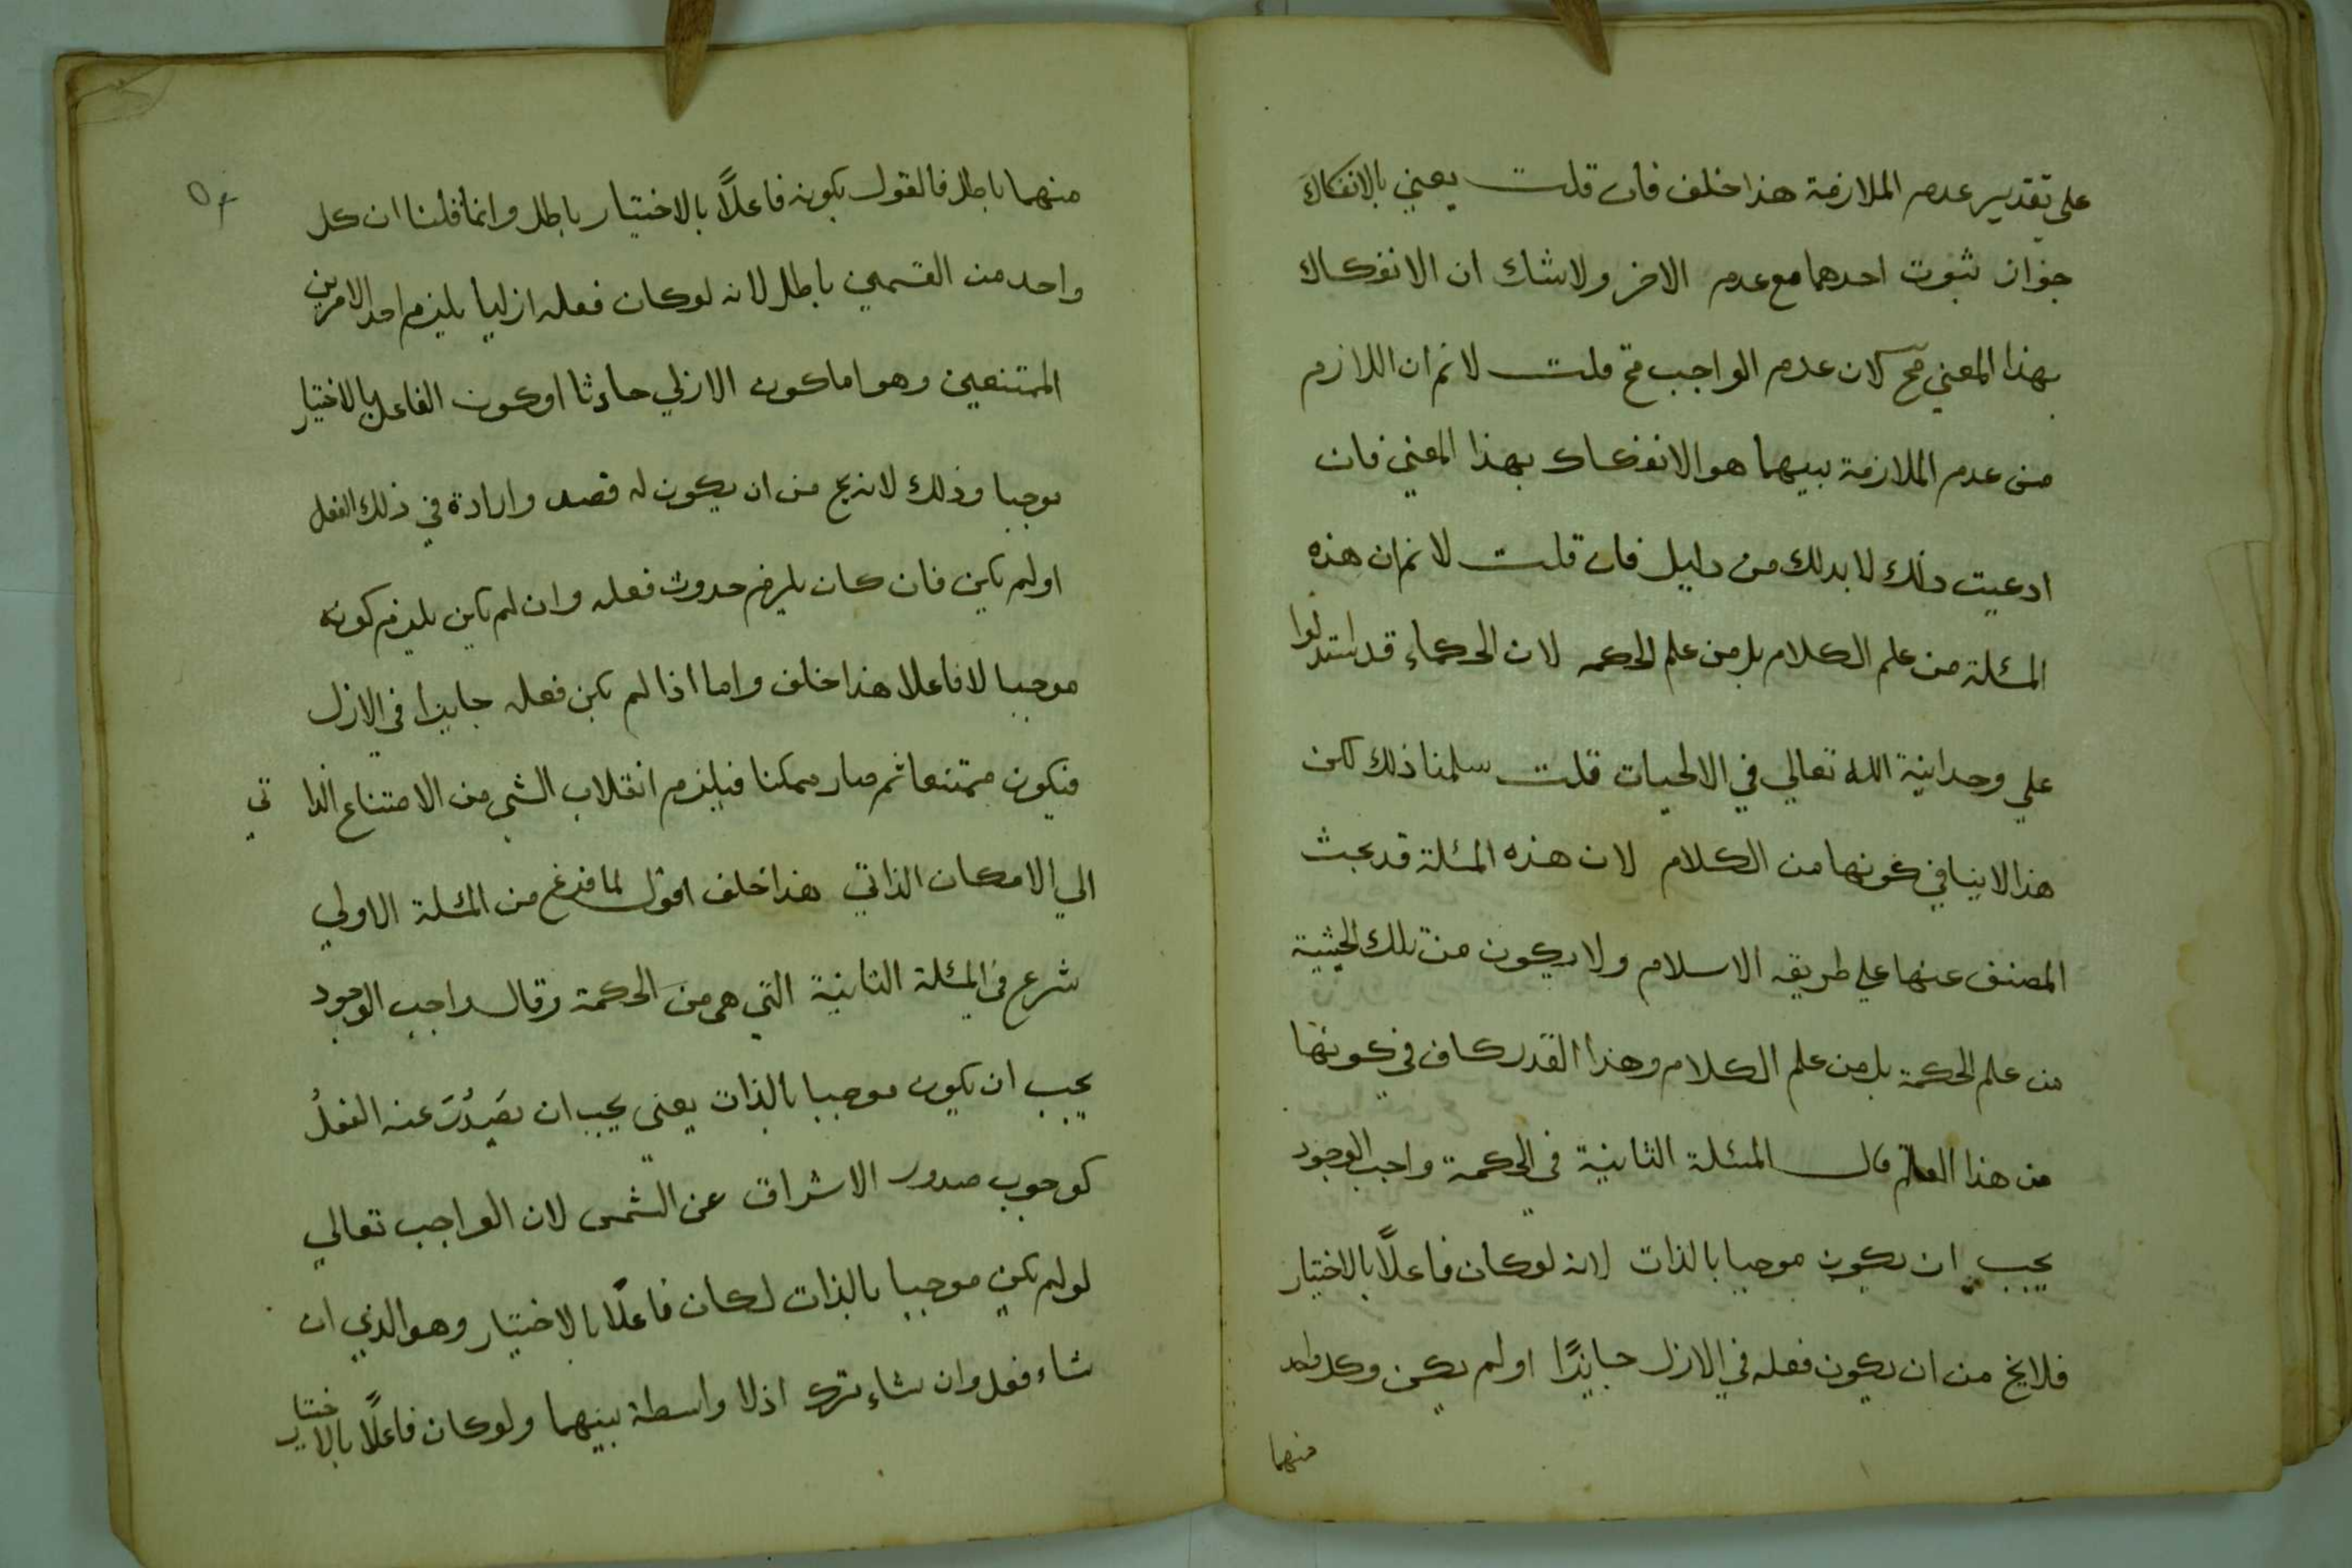 على تقدير عدم الملازمة هذا خلف فان قلت يعني بالانفكاك
جواز ثبوت احدهما مع عدم الاخر ولا شك ان الانفكاك
بهذا المعني مح لان عدم الواجب مح قلت لا نم ان اللازم
من عدم الملازمة بينهما هو الانفكاك بهذا المعني فان
ادعيت ذلك لا بد لك من دليل فان قلت لا نم ان هذه
المسئلة من علم الكلام بل من علم الحكمه لان الحكماء قد استدلوا
علي وحدانية الله تعالي في الالهيات قلت سلمنا ذلك لكن
هذا لا ينافي كونها من الكلام لان هذه المسئلة قد بحث
المصنف عنها علي طريقه الاسلام ولا يكون من تلك الحيثية
من علم الحكمة بل من علم الكلام وهذا القدر كاف في كونها
من هذا العلم قال المسئلة الثانية في الحكمة واجب الوجود
يجب ان يكون موجبا بالذات لانه لو كان فاعلًا بالاختيار
فلا يخ من ان يكون فعله في الازل جايزًا او لم يكن وكل واحد
منهما
منهما باطل فالقول بكونه فاعلًا بالاختيار باطل وانما قلنا ان كل
واحد من القسمين باطل لانه لو كان فعله ازليا يلزم احد الامرين
الممتنعين وهو اما كون الازلي حادثا او كون الفاعل بالاختيار
موجبا وذلك لانه يخ من ان يكون له قصد وارادة في ذلك الفعل
او لم يكن فان كان يلزم حدوث فعله وان لم يكن يلزم كونه
موجبا لا فاعلا هذا خلف واما اذا لم يكن فعله جايزا في الازل
فيكون ممتنعا ثم صار ممكنا فيلزم انقلاب الشي من الامتناع الذاتي
الي الامكان الذاتي هذا خلف اقول لما فرغ من المسئلة الاولي
شرع في المسئلة الثانية التي هي من الحكمة وقال واجب الوجود
يجب ان يكون موجبا بالذات يعني يجب ان يصدُرَ عنه الفعلُ
كوجوب صدور الاشراق عن الشمس لان الواجب تعالي
لو لم يكن موجبا بالذات لكان فاعلًا بالاختيار وهو الذي ان
شاء فعل وان شاء ترك اذ لا واسطة بينهما ولو كان فاعلًا بالاختيار